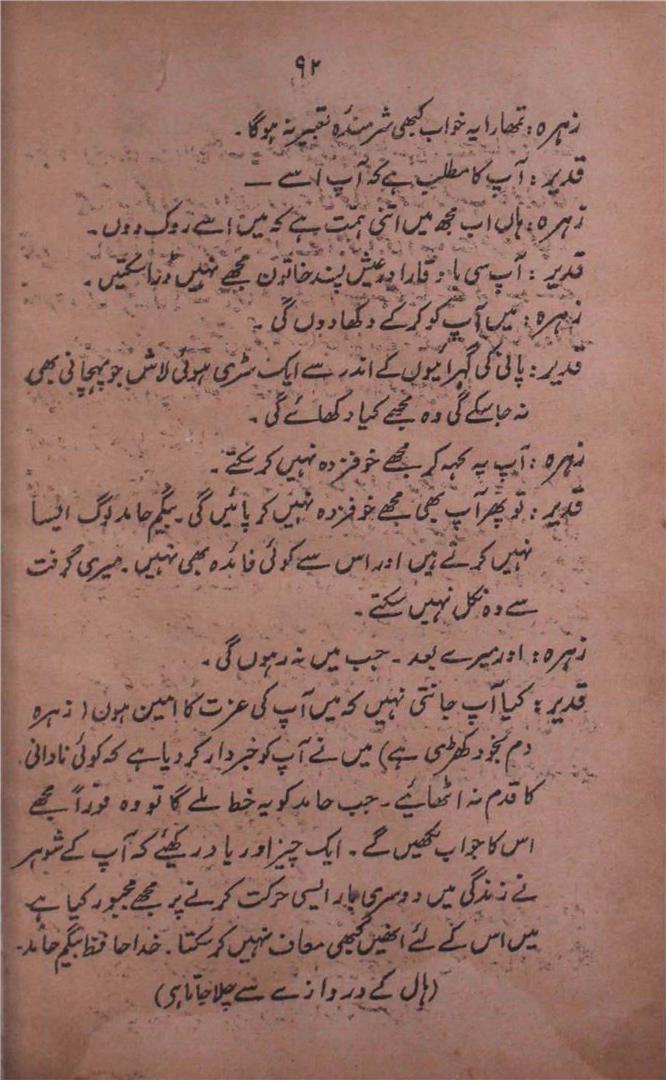 ۹۲
زہرہ: تمھارا یہ خواب کبھی شرمندۂ تعبیر نہ ہوگا۔
قدیر: آپ کا مطلب ہے کہ آپ اسے —
زہرہ: ہاں اب مجھ میں اتنی ہمت ہے کہ میں اسے روک دوں۔
قدیر: آپ سی باوقار اور عیش پسند خاتون مجھے نہیں ڈرا سکتیں۔
زہرہ: میں آپ کو کر کے دکھا دوں گی۔
قدیر: پانی کی گہرائیوں کے اندر سے ایک سڑی ہوئی لاش جو پہچانی بھی
نہ جا سکے گی وہ مجھے کیا دکھائے گی۔
زہرہ: آپ یہ کہہ کر مجھے خوفزدہ نہیں کر سکتے۔
قدیر: تو پھر آپ بھی مجھے خوفزدہ نہیں کر پائیں گی۔ بیگم حامد لوگ ایسا
نہیں کرتے ہیں اور اس سے کوئی فائدہ بھی نہیں۔ میری گرفت
سے وہ نکل نہیں سکتے۔
زہرہ: اور میرے بعد۔ جب میں نہ رہوں گی۔
قدیر: کیا آپ جانتی نہیں کہ میں آپ کی عزت کا امین ہوں (زہرہ
دم بخود کھڑی ہے) میں نے آپ کو خبردار کر دیا ہے کہ کوئی نادانی
کا قدم نہ اٹھائیے۔ جب حامد کو یہ خط ملے گا تو وہ فوراً مجھے
اس کا جواب لکھیں گے۔ ایک چیز اور یاد رکھئے کہ آپ کے شوہر
نے زندگی میں دوسری بار ایسی حرکت کرنے پر مجھے مجبور کیا ہے
میں اس کے لئے انھیں کبھی معاف نہیں کر سکتا۔ خدا حافظ بیگم حامد۔
(ہال کے دروازے سے چلا جاتا ہی)